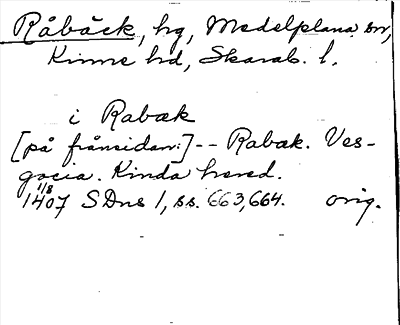 Råbäck, hg, Medelplana sn,
Kinne hd, Skarab. l.
i Rabæk
[på frånsidan:] -- Rabæk. Ves-
gocia. Kinda hæred.
1/8
1407 SDns 1, ss. 663, 664. orig.